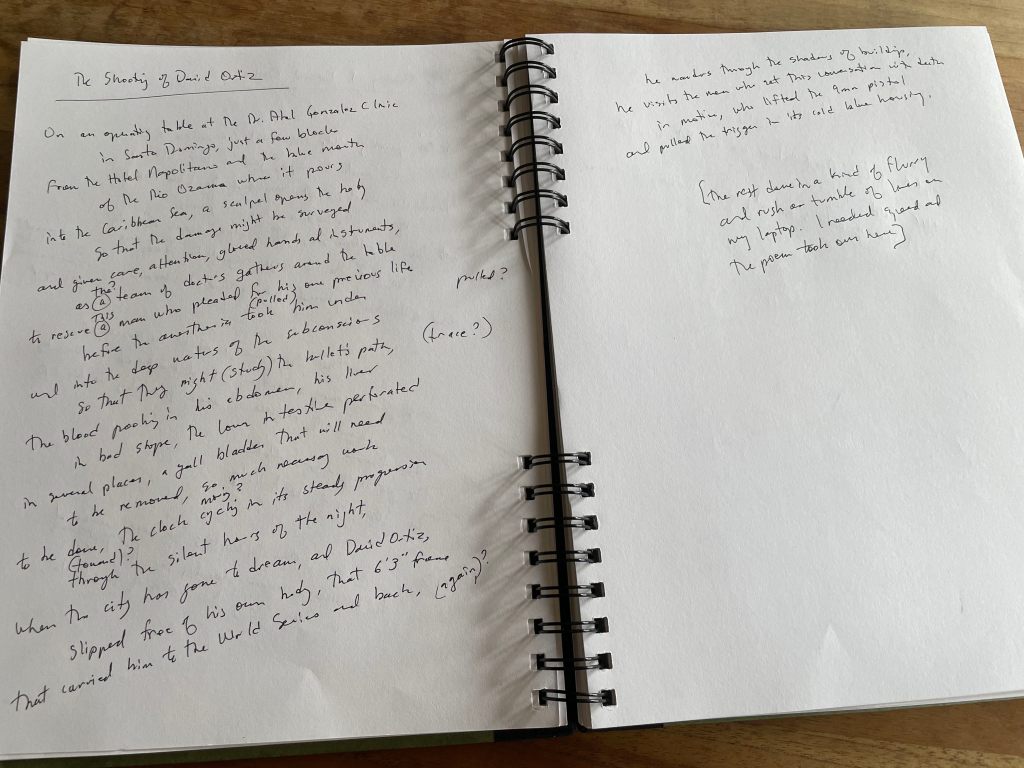 The Shooting of David Ortiz
On an operating table at the Dr. Abel Gonzalez Clinic
in Santo Domingo, just a few blocks
from the Hotel Napolitano and the blue mouth
of the Rio Ozama where it pours
into the Caribbean Sea, a scalpel opens the body
so that the damage might be surveyed
and given care, attention, gloved hands and instruments,
the?
as (a) team of doctors gathers around the table
This
to rescue (a) man who pleaded for his one precious life
(pulled)
before the anesthesia took him under
pulled?
and into the deep waters of the subconscious
so that they might (study) the bullet's path,
(trace?)
the blood pooling in his abdomen, his liver
in bad shape, the lower intestine perforated
in several places, a gall bladder that will need
to be removed, so much necessary work
to be done, the clock cycling in its steady progression
(toward)?
through the silent hours of the night,
when the city has gone to dream, and David Ortiz,
slipped free of his own body, that 6'3" frame
that carried him to the World Series and back, (again)?
he wanders through the shadows of buildings,
he visits the man who set this conversation with death
in motion, who lifted the 9mm pistol
and pulled the trigger in its cold housing.
[The rest done in a kind of flurry
and rush or tumble of lines on
my laptop. I needed speed and
the poem took over here]